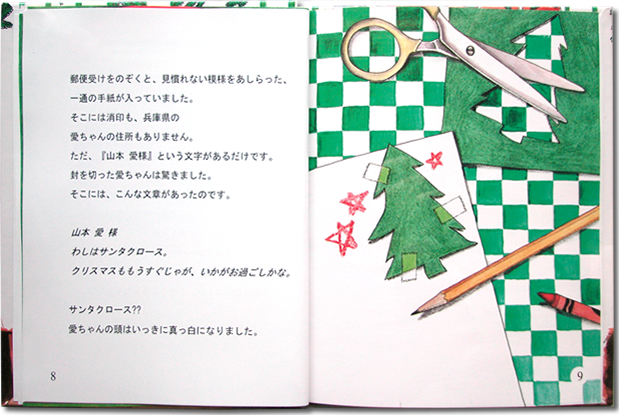 郵便受けをのぞくと、見慣れない模様をあしらった、
一通の手紙が入っていました。
そこには消印も、兵庫県の
愛ちゃんの住所もありません。
ただ、『山本 愛様』という文字があるだけです。
封を切った愛ちゃんは驚きました。
そこには、こんな文章があったのです。
山本 愛 様
わしはサンタクロース。
クリスマスももうすぐじゃが、いかがお過ごしかな。
サンタクロース??
愛ちゃんの頭はいっきに真っ白になりました。
8
9